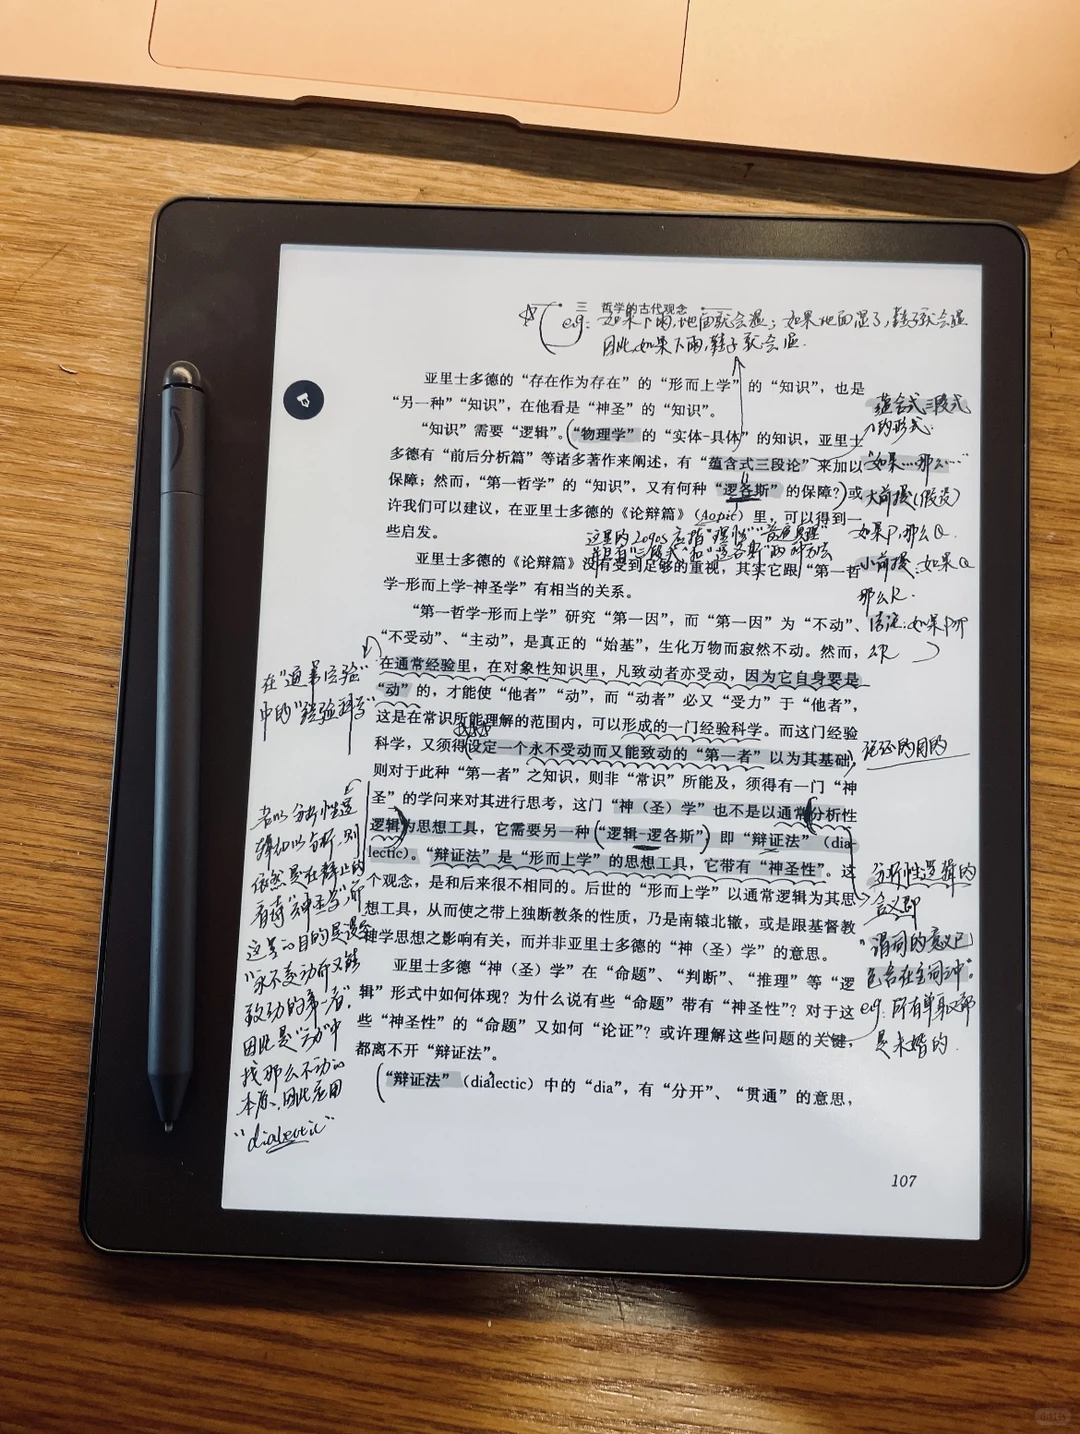 三 哲学的古代观念
eg: 如果下雨,地面就会湿; 如果地面湿了,鞋子就会湿
因此,如果下雨,鞋子就会湿.
亚里士多德的“存在作为存在”的“形而上学”的“知识”，也是
“另一种”“知识”，在他看是“神圣”的“知识”。
“知识”需要“逻辑”。“物理学”的“实体-具体”的知识，亚里士
多德有“前后分析篇”等诸多著作来阐述，有“蕴含式三段论”来加以
保障；然而，“第一哲学”的“知识”，又有何种“逻各斯”的保障？或
许我们可以建议，在亚里士多德的《论辩篇》（Aopic）里，可以得到一
些启发。
这里的 Logos 应指“理性”
亚里士多德的《论辩篇》没有受到足够的重视，其实它跟“第一哲
学-形而上学-神圣学”有相当的关系。
“第一哲学-形而上学”研究“第一因”，而“第一因”为“不动”、
“不受动”、“主动”，是真正的“始基”，生化万物而寂然不动。然而，
在通常经验里，在对象性知识里，凡致动者亦受动，因为它自身要是
“动”的，才能使“他者”“动”，而“动者”必又“受力”于“他者”，
这是在常识所能理解的范围内，可以形成的一门经验科学。而这门经验
科学，又须得设定一个永不受动而又能致动的“第一者”以为其基础，
则对于此种“第一者”之知识，则非“常识”所能及，须得有一门“神
圣”的学问来对其进行思考，这门“神（圣）学”也不是以通常分析性
逻辑为思想工具，它需要另一种“逻辑-逻各斯”，即“辩证法”（dia-
lectic）。“辩证法”是“形而上学”的思想工具，它带有“神圣性”。这
个观念，是和后来很不相同的。后世的“形而上学”以通常逻辑为其思
想工具，从而使之带上独断教条的性质，乃是南辕北辙，或是跟基督教
神学思想之影响有关，而并非亚里士多德的“神（圣）学”的意思。
亚里士多德“神（圣）学”在“命题”、“判断”、“推理”等“逻
辑”形式中如何体现？为什么说有些“命题”带有“神圣性”？对于这
些“神圣性”的“命题”又如何“论证”？或许理解这些问题的关键，
都离不开“辩证法”。
“辩证法”（dialectic）中的“dia”，有“分开”、“贯通”的意思，
107
蕴含式三段式
的形式.
“如果……那么…”
大前提(假设)
如果P,那么Q.
小前提:如果Q
那么R.
结论:如果P那
么R
论证的目的
分析性逻辑的
含义即
“谓词的意义已
包含在主词中”。
eg: 所有单身汉都
是未婚的.
在“通常经验”
中的“经验科学”
若以分析性逻
辑加以分析,则
依然是在静止的
看待“神圣学”,而
这里的目的是设定
“永不受动而又能
致动的第一者”.
因此是“动”中
找那么不动的
本质,因此应用
“dialectic”